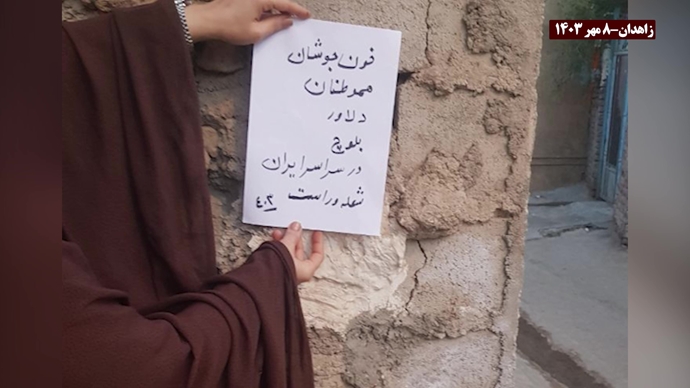 زاهدان-۸ مهر ۱۴۰۳
خون جوشان
هموطنان
دلاور
بلوچ
در سراسر ایران
شعله ور است
۴۰۳